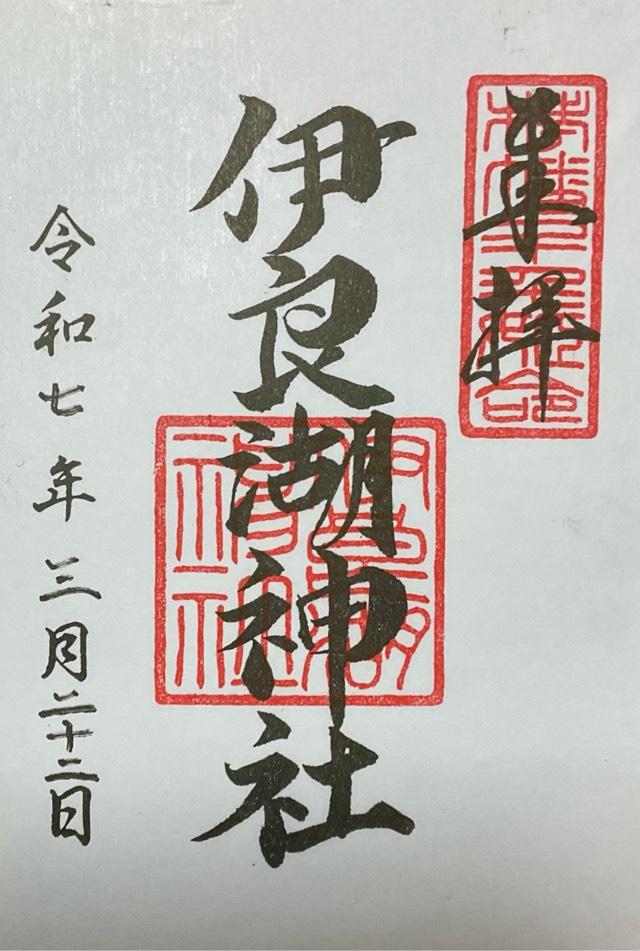 奉拝
伊良湖神社
令和七年三月二十二日